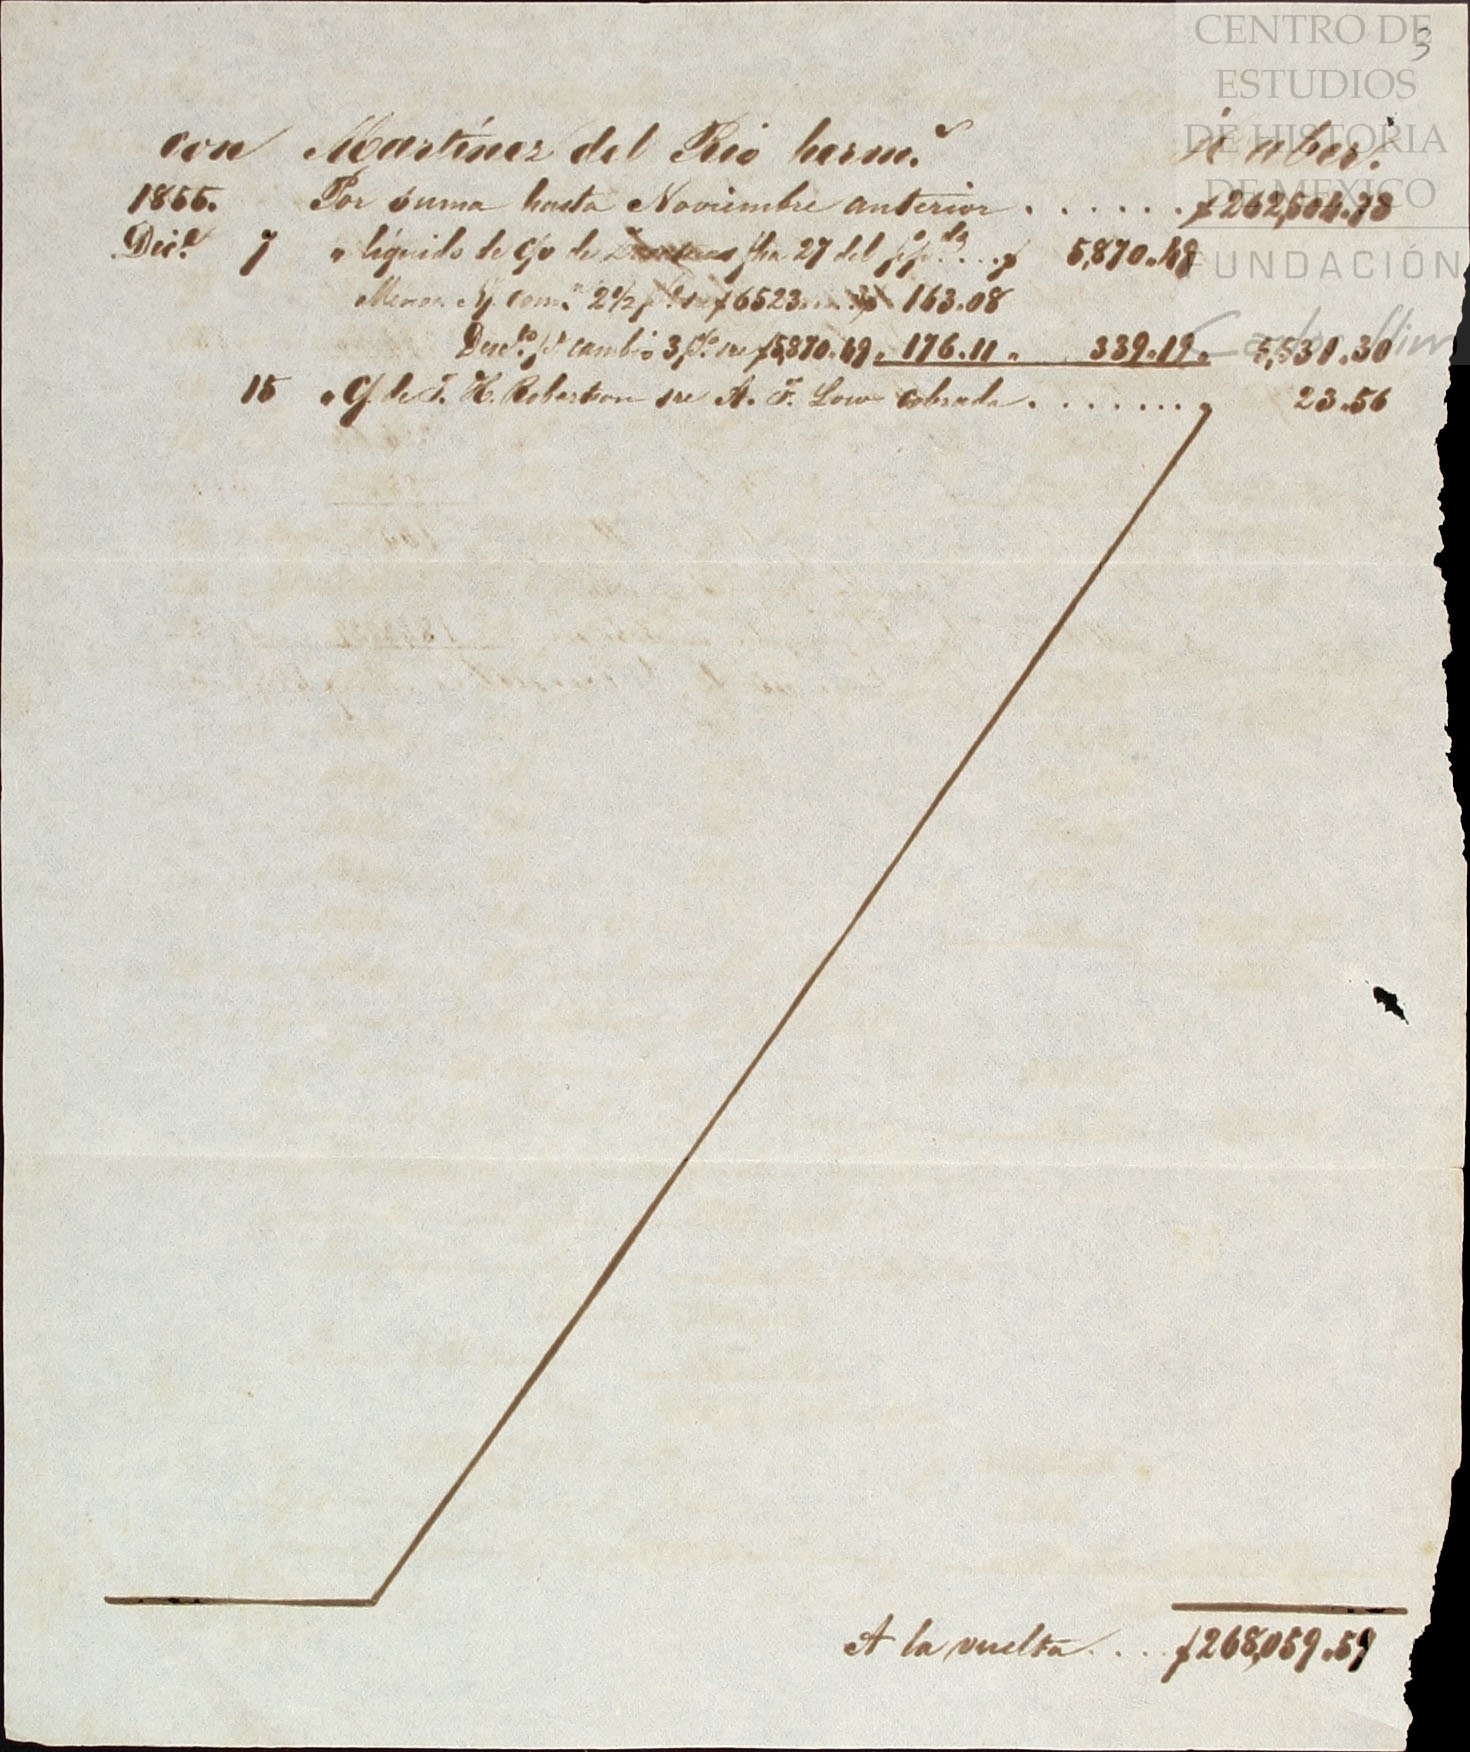 CENTRO DE
ESTUDIOS
DE HISTORIA
DE MEXICO
FUNDACIÓN
3
con Martínez del Rio herm.ˢ Haber.
1855. Por suma hasta Noviembre anterior . . . . . . $ 262,504.73
Dic.ᵉ 7 " líquido de c/v de fha 27 del p.p.ᵈᵒ . . . $ 5,870.49
Menos com.ⁿ 2½ p.% sre $6523 . . . $ 163.08
Desc.ᵗᵒ p.ʳ cambio 3 p.% sre $5,870.49 " 176.11 " 339.19 " 5,531.30
15 " de T. H. Robertson sre A. F. Low cobrada . . . . . . . " 23.56
A la vuelta . . . . $ 268,059.59